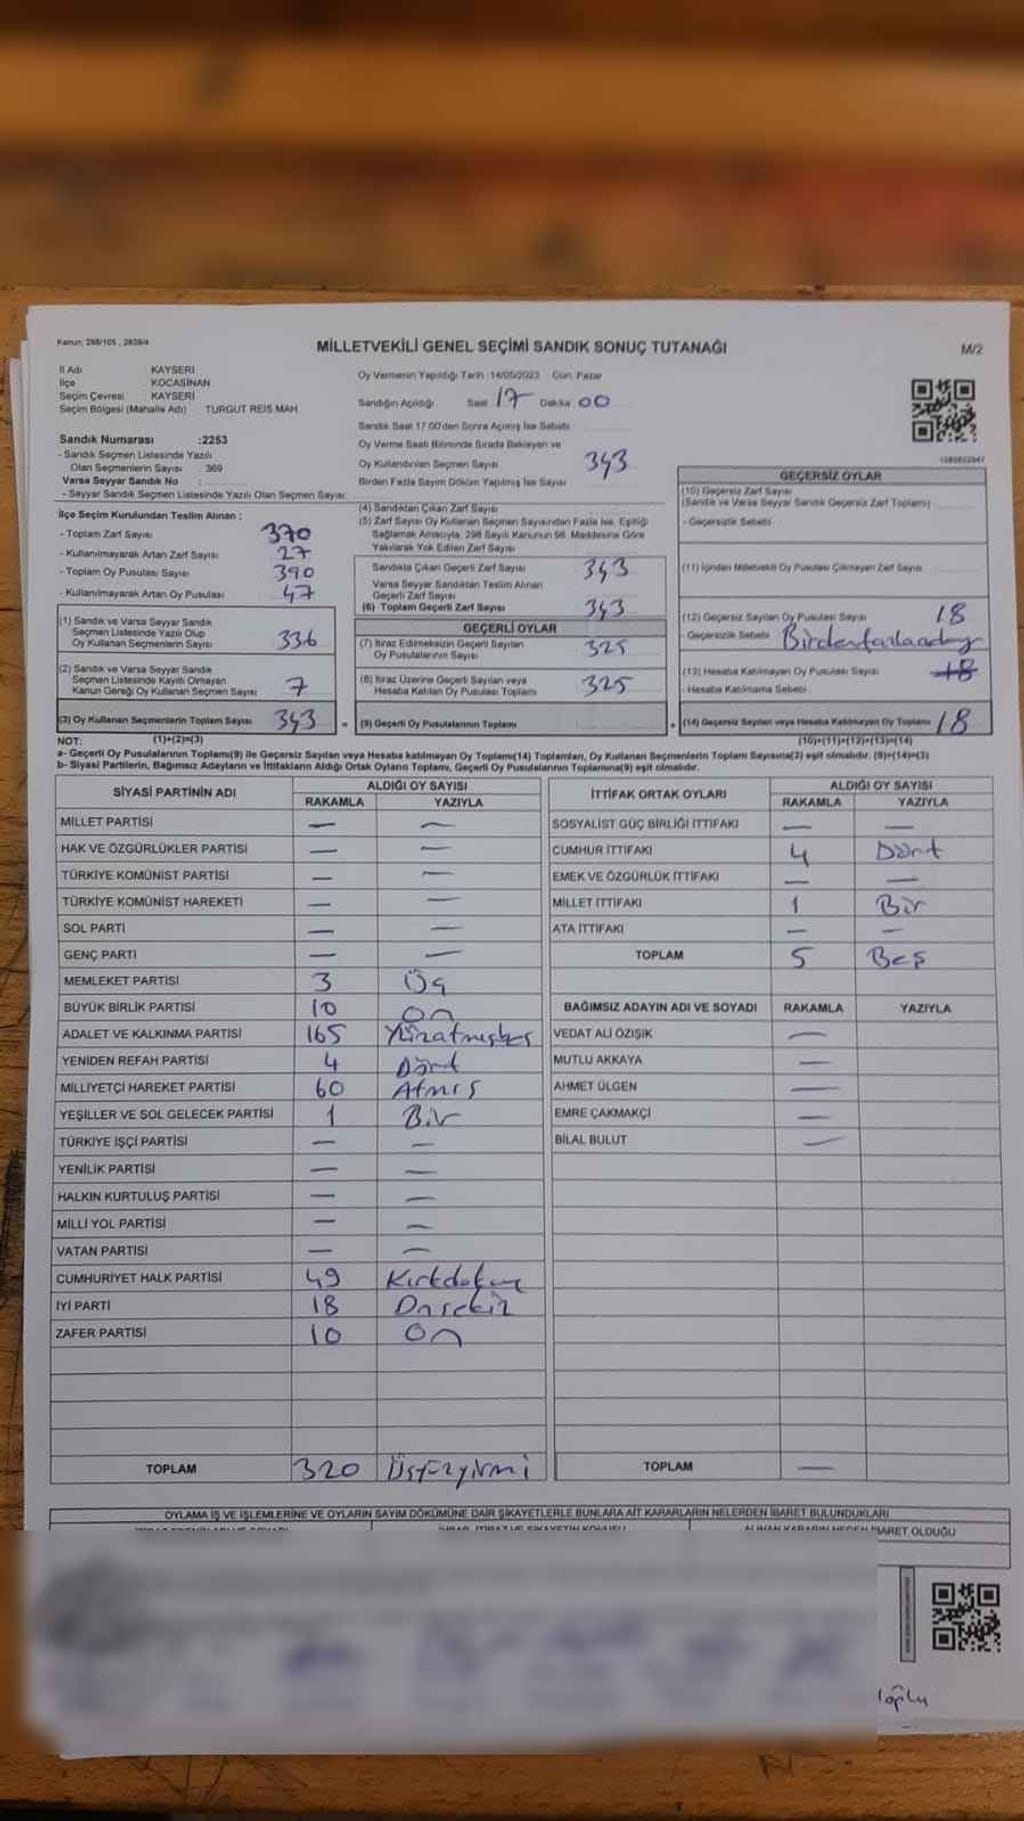 Kanun: 298/105 , 2839/4
MİLLETVEKİLİ GENEL SEÇİMİ SANDIK SONUÇ TUTANAĞI
M/2
İl Adı KAYSERİ
İlçe KOCASİNAN
Seçim Çevresi KAYSERİ
Seçim Bölgesi (Mahalle Adı) TURGUT REİS MAH
Sandık Numarası :2253
- Sandık Seçmen Listesinde Yazılı
Olan Seçmenlerin Sayısı : 369
Varsa Seyyar Sandık No :
- Seyyar Sandık Seçmen Listesinde Yazılı Olan Seçmen Sayısı:
Oy Vermenin Yapıldığı Tarih :14/05/2023 Gün: Pazar
Sandığın Açıldığı Saat 17 Dakika 00
Sandık Saat 17:00'den Sonra Açılmış İse Sebebi
Oy Verme Saati Bitiminde Sırada Bekleyen ve
Oy Kullandırılan Seçmen Sayısı 343
Birden Fazla Sayım Döküm Yapılmış İse Sayısı
İlçe Seçim Kurulundan Teslim Alınan :
- Toplam Zarf Sayısı 370
- Kullanılmayarak Artan Zarf Sayısı 27
- Toplam Oy Pusulası Sayısı 390
- Kullanılmayarak Artan Oy Pusulası 47
(1) Sandık ve Varsa Seyyar Sandık
Seçmen Listesinde Yazılı Olup
Oy Kullanan Seçmenlerin Sayısı 336
(2) Sandık ve Varsa Seyyar Sandık
Seçmen Listesinde Kayıtlı Olmayan
Kanun Gereği Oy Kullanan Seçmen Sayısı 7
(3) Oy Kullanan Seçmenlerin Toplam Sayısı 343
(4) Sandıktan Çıkan Zarf Sayısı
(5) Zarf Sayısı Oy Kullanan Seçmen Sayısından Fazla İse, Eşitliği
Sağlamak Amacıyla, 298 Sayılı Kanunun 98. Maddesine Göre
Yakılarak Yok Edilen Zarf Sayısı
Sandıkta Çıkan Geçerli Zarf Sayısı 343
Varsa Seyyar Sandıktan Teslim Alınan
Geçerli Zarf Sayısı
(6) Toplam Geçerli Zarf Sayısı 343
GEÇERLİ OYLAR
(7) İtiraz Edilmeksizin Geçerli Sayılan
Oy Pusulalarının Sayısı 325
(8) İtiraz Üzerine Geçerli Sayılan veya
Hesaba Katılan Oy Pusulası Toplamı 325
= (9) Geçerli Oy Pusulalarının Toplamı
GEÇERSİZ OYLAR
(10) Geçersiz Zarf Sayısı
(Sandık ve Varsa Seyyar Sandık Geçersiz Zarf Toplamı)
- Geçersizlik Sebebi
(11) İçinden Milletvekili Oy Pusulası Çıkmayan Zarf Sayısı
(12) Geçersiz Sayılan Oy Pusulası Sayısı 18
- Geçersizlik Sebebi
(13) Hesaba Katılmayan Oy Pusulası Sayısı 18
- Hesaba Katılmama Sebebi :
+ (14) Geçersiz Sayılan veya Hesaba Katılmayan Oy Toplamı 18
NOT: (1)+(2)=(3) (10)+(11)+(12)+(13)=(14)
a- Geçerli Oy Pusulalarının Toplamı(9) ile Geçersiz Sayılan veya Hesaba katılmayan Oy Toplamı(14) Toplamları, Oy Kullanan Seçmenlerin Toplam Sayısına(3) eşit olmalıdır. (9)+(14)=(3)
b- Siyasi Partilerin, Bağımsız Adayların ve İttifakların Aldığı Ortak Oyların Toplamı, Geçerli Oy Pusulalarının Toplamına(9) eşit olmalıdır.
SİYASİ PARTİNİN ADI ALDIĞI OY SAYISI
RAKAMLA YAZIYLA
MİLLET PARTİSİ — —
HAK VE ÖZGÜRLÜKLER PARTİSİ — —
TÜRKİYE KOMÜNİST PARTİSİ — —
TÜRKİYE KOMÜNİST HAREKETİ — —
SOL PARTİ — —
GENÇ PARTİ — —
MEMLEKET PARTİSİ 3 Üç
BÜYÜK BİRLİK PARTİSİ 10 On
ADALET VE KALKINMA PARTİSİ 165 Yüzatmışbeş
YENİDEN REFAH PARTİSİ 4 Dört
MİLLİYETÇİ HAREKET PARTİSİ 60 Atmış
YEŞİLLER VE SOL GELECEK PARTİSİ 1 Bir
TÜRKİYE İŞÇİ PARTİSİ — —
YENİLİK PARTİSİ — —
HALKIN KURTULUŞ PARTİSİ — —
MİLLİ YOL PARTİSİ — —
VATAN PARTİSİ — —
CUMHURİYET HALK PARTİSİ 49 Kırkdokuz
İYİ PARTİ 18 Onsekiz
ZAFER PARTİSİ 10 On
TOPLAM 320 Üçyüzyirmi
İTTİFAK ORTAK OYLARI ALDIĞI OY SAYISI
RAKAMLA YAZIYLA
SOSYALİST GÜÇ BİRLİĞİ İTTİFAKI — —
CUMHUR İTTİFAKI 4 Dört
EMEK VE ÖZGÜRLÜK İTTİFAKI — —
MİLLET İTTİFAKI 1 Bir
ATA İTTİFAKI — —
TOPLAM 5 Beş
BAĞIMSIZ ADAYIN ADI VE SOYADI RAKAMLA YAZIYLA
VEDAT ALİ ÖZIŞIK —
MUTLU AKKAYA —
AHMET ÜLGEN —
EMRE ÇAKMAKÇİ —
BİLAL BULUT —
TOPLAM —
OYLAMA İŞ VE İŞLEMLERİNE VE OYLARIN SAYIM DÖKÜMÜNE DAİR ŞİKAYETLERLE BUNLARA AİT KARARLARIN NELERDEN İBARET BULUNDUKLARI